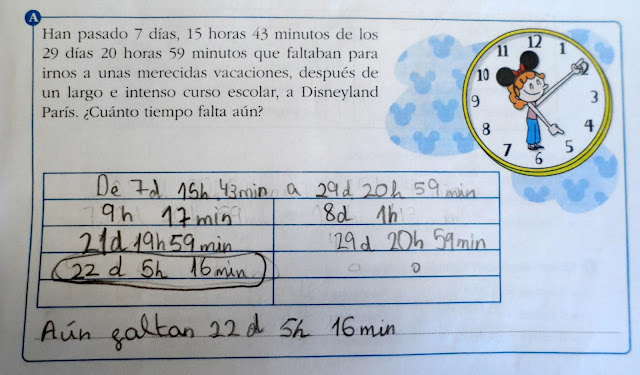 A
Han pasado 7 días, 15 horas 43 minutos de los
29 días 20 horas 59 minutos que faltaban para
irnos a unas merecidas vacaciones, después de
un largo e intenso curso escolar, a Disneyland
París. ¿Cuánto tiempo falta aún?
11 12 1
10
9 3
8 4
7 6 5
De 7d 15h 43min a 29d 20h 59 min
9h 17min 8d 1h
21d 19h 59min 29d 20h 59min
22 d 5h 16min 0 0
Aún faltan 22 d 5h 16min